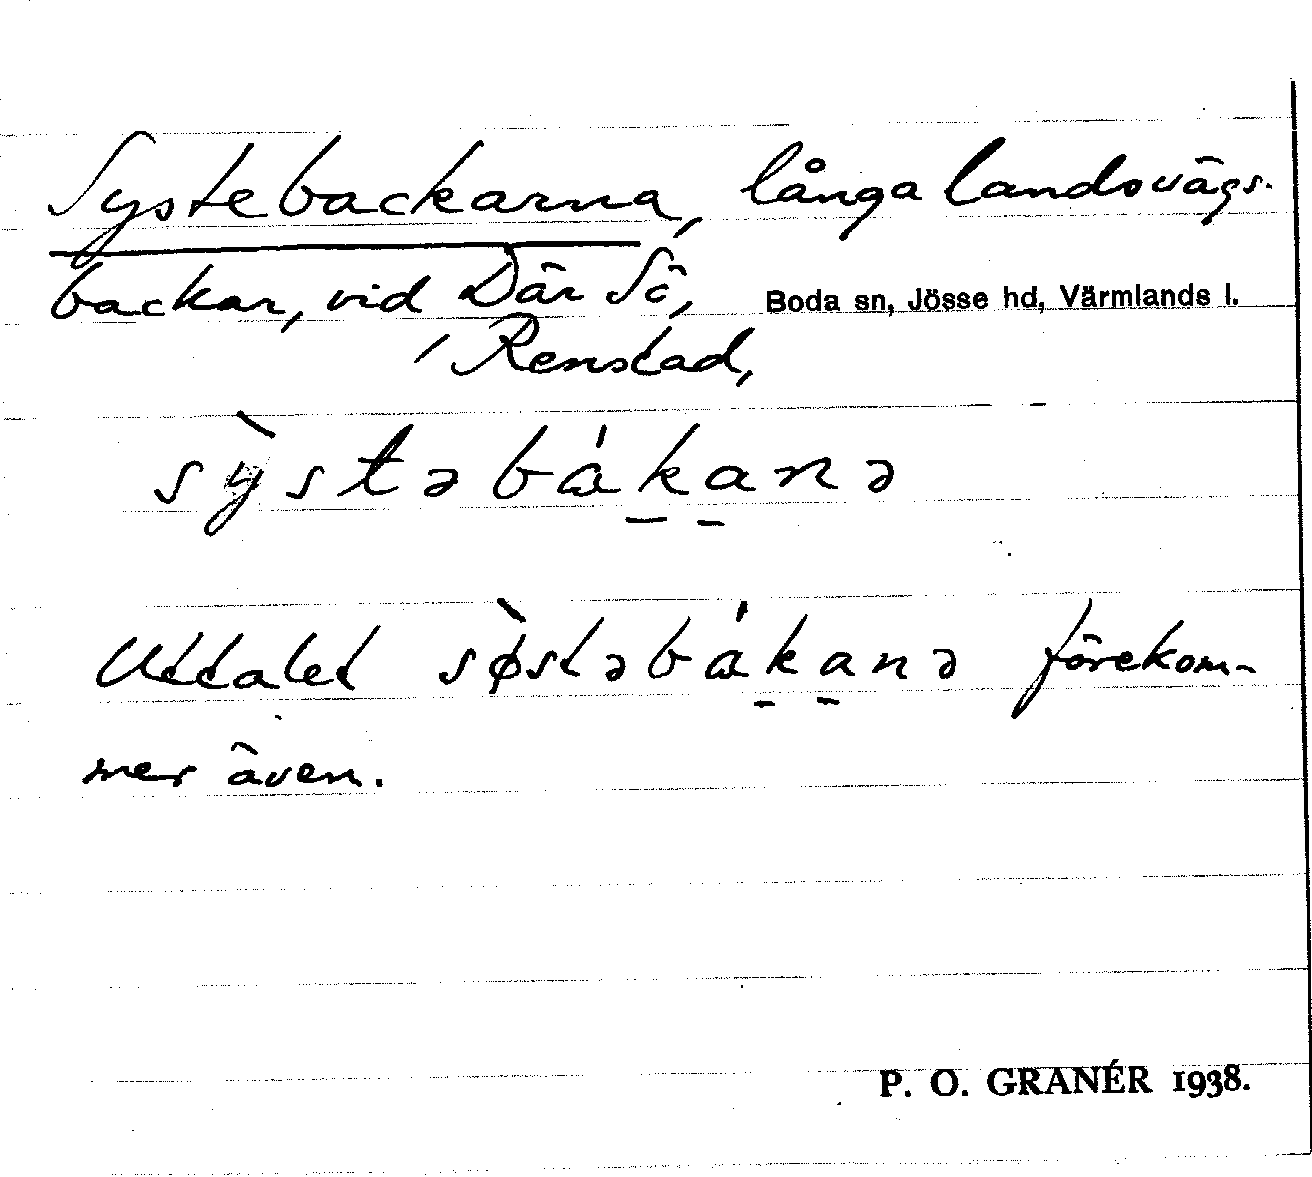 Systebackarna, långa landsvägs-
backar, vid Där Sö, Boda sn, Jösse hd, Värmlands l.
/ Renstad,
sỳstəbákanə
Uttalet sø̀stəbákanə förekom-
mer även.
P. O. GRANÉR 1938.